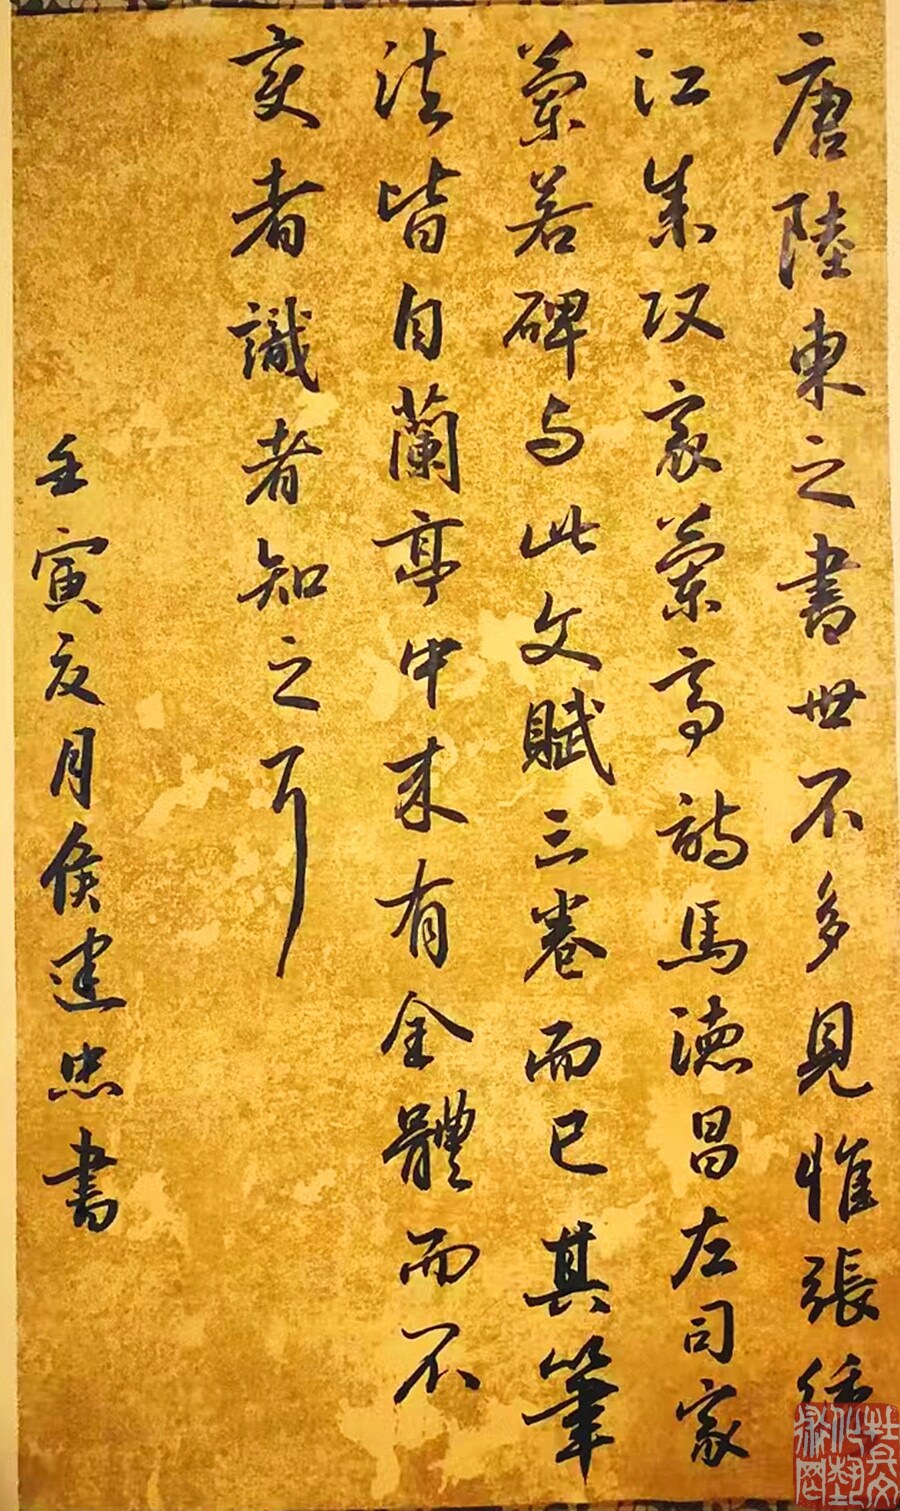 唐陸東之書世不多見惟張
江朱家蘭亭詩馬德昌左司家
蘭若碑与此文賦三卷而已其筆
法皆自蘭亭中来有全體而不
变者識者知之耳
壬寅夏月侯建忠書